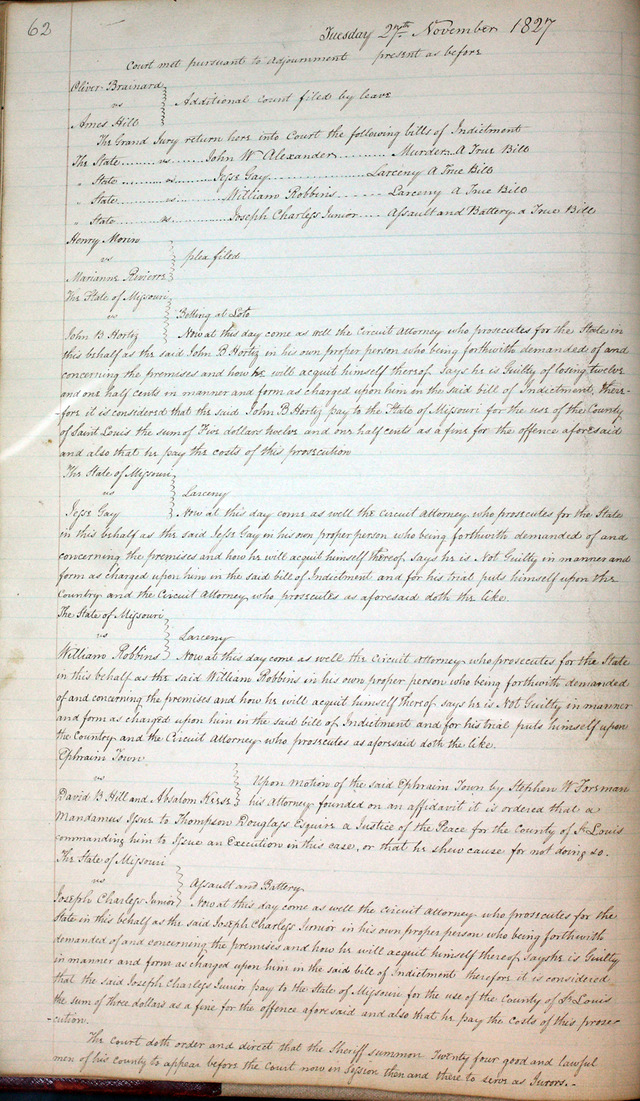 62 Tuesday 27th November 1827
Court met pursuant to adjournment present as before
Oliver Brainard
vs Additional count filed by leave
Amos Hill
The Grand Jury return here into Court the following bills of Indictment
The State vs John W Alexander Murder A True Bill
" State vs Jesse Gay Larceny A True Bill
" State vs William Robbins Larceny A True Bill
" State vs Joseph Charless Junior Assault and Battery a True Bill
Henry Moreu
vs plea filed
Marianne Rivierre
The State of Missouri
vs Betting at Loto
John B Hortiz Now at this day come as well the Circuit Attorney who prosecutes for the State in
this behalf as the said John B Hortiz in his own proper person who being forthwith demanded of and
concerning the premises and how he will acquit himself thereof. Says he is Guilty of losing twelve
and one half cents in manner and form as charged upon him in the said bill of Indictment, there-
fore it is considered that the said John B Hortiz pay to the State of Missouri for the use of the County
of Saint Louis the sum of Five dollars twelve and one half cents as a fine for the offence aforesaid
and also that he pay the costs of this prosecution
The State of Missouri
vs Larceny
Jesse Gay Now at this day come as well the Circuit Attorney who prosecutes for the State
in this behalf as the said Jesse Gay in his own proper person who being forthwith demanded of and
concerning the premises and how he will acquit himself thereof says he is Not Guilty in manner and
form as charged upon him in the said bill of Indictment and for his trial puts himself upon the
Country and the Circuit Attorney who prosecutes as aforesaid doth the like.
The State of Missouri
vs Larceny
William Robbins Now at this day come as well the Circuit Attorney who prosecutes for the State
in this behalf as the said William Robbins in his own proper person who being forthwith demanded
of and concerning the premises and how he will acquit himself thereof says he is Not Guilty in manner
and form as charged upon him in the said bill of Indictment and for his trial puts himself upon
the Country and the Circuit Attorney who prosecutes as aforesaid doth the like.
Ephraim Town
vs Upon motion of the said Ephraim Town by Stephen W Foreman
David B Hill and Absalom Kerss his Attorney founded on an affidavit it is ordered that a
Mandamus Issue to Thompson Douglass Esquire a Justice of the Peace for the County of St Louis
commanding him to Issue an Execution in this case, or that he shew cause for not doing so.
The State of Missouri
vs Assault and Battery
Joseph Charless Junior Now at this day come as well the Circuit Attorney who prosecutes for the
State in this behalf as the said Joseph Charless Junior in his own proper person who being forthwith
demanded of and concerning the premises and how he will acquit himself thereof Says he is Guilty
in manner and form as charged upon him in the said bill of Indictment therefore it is considered
that the said Joseph Charless Junior pay to the State of Missouri for the use of the County of St Louis
the sum of three dollars as a fine for the offence aforesaid and also that he pay the costs of this prose-
-cution.
The Court doth order and direct that the Sheriff summon Twenty four good and lawful
men of his county to appear before the Court now in Session then and there to serve as Jurors.-